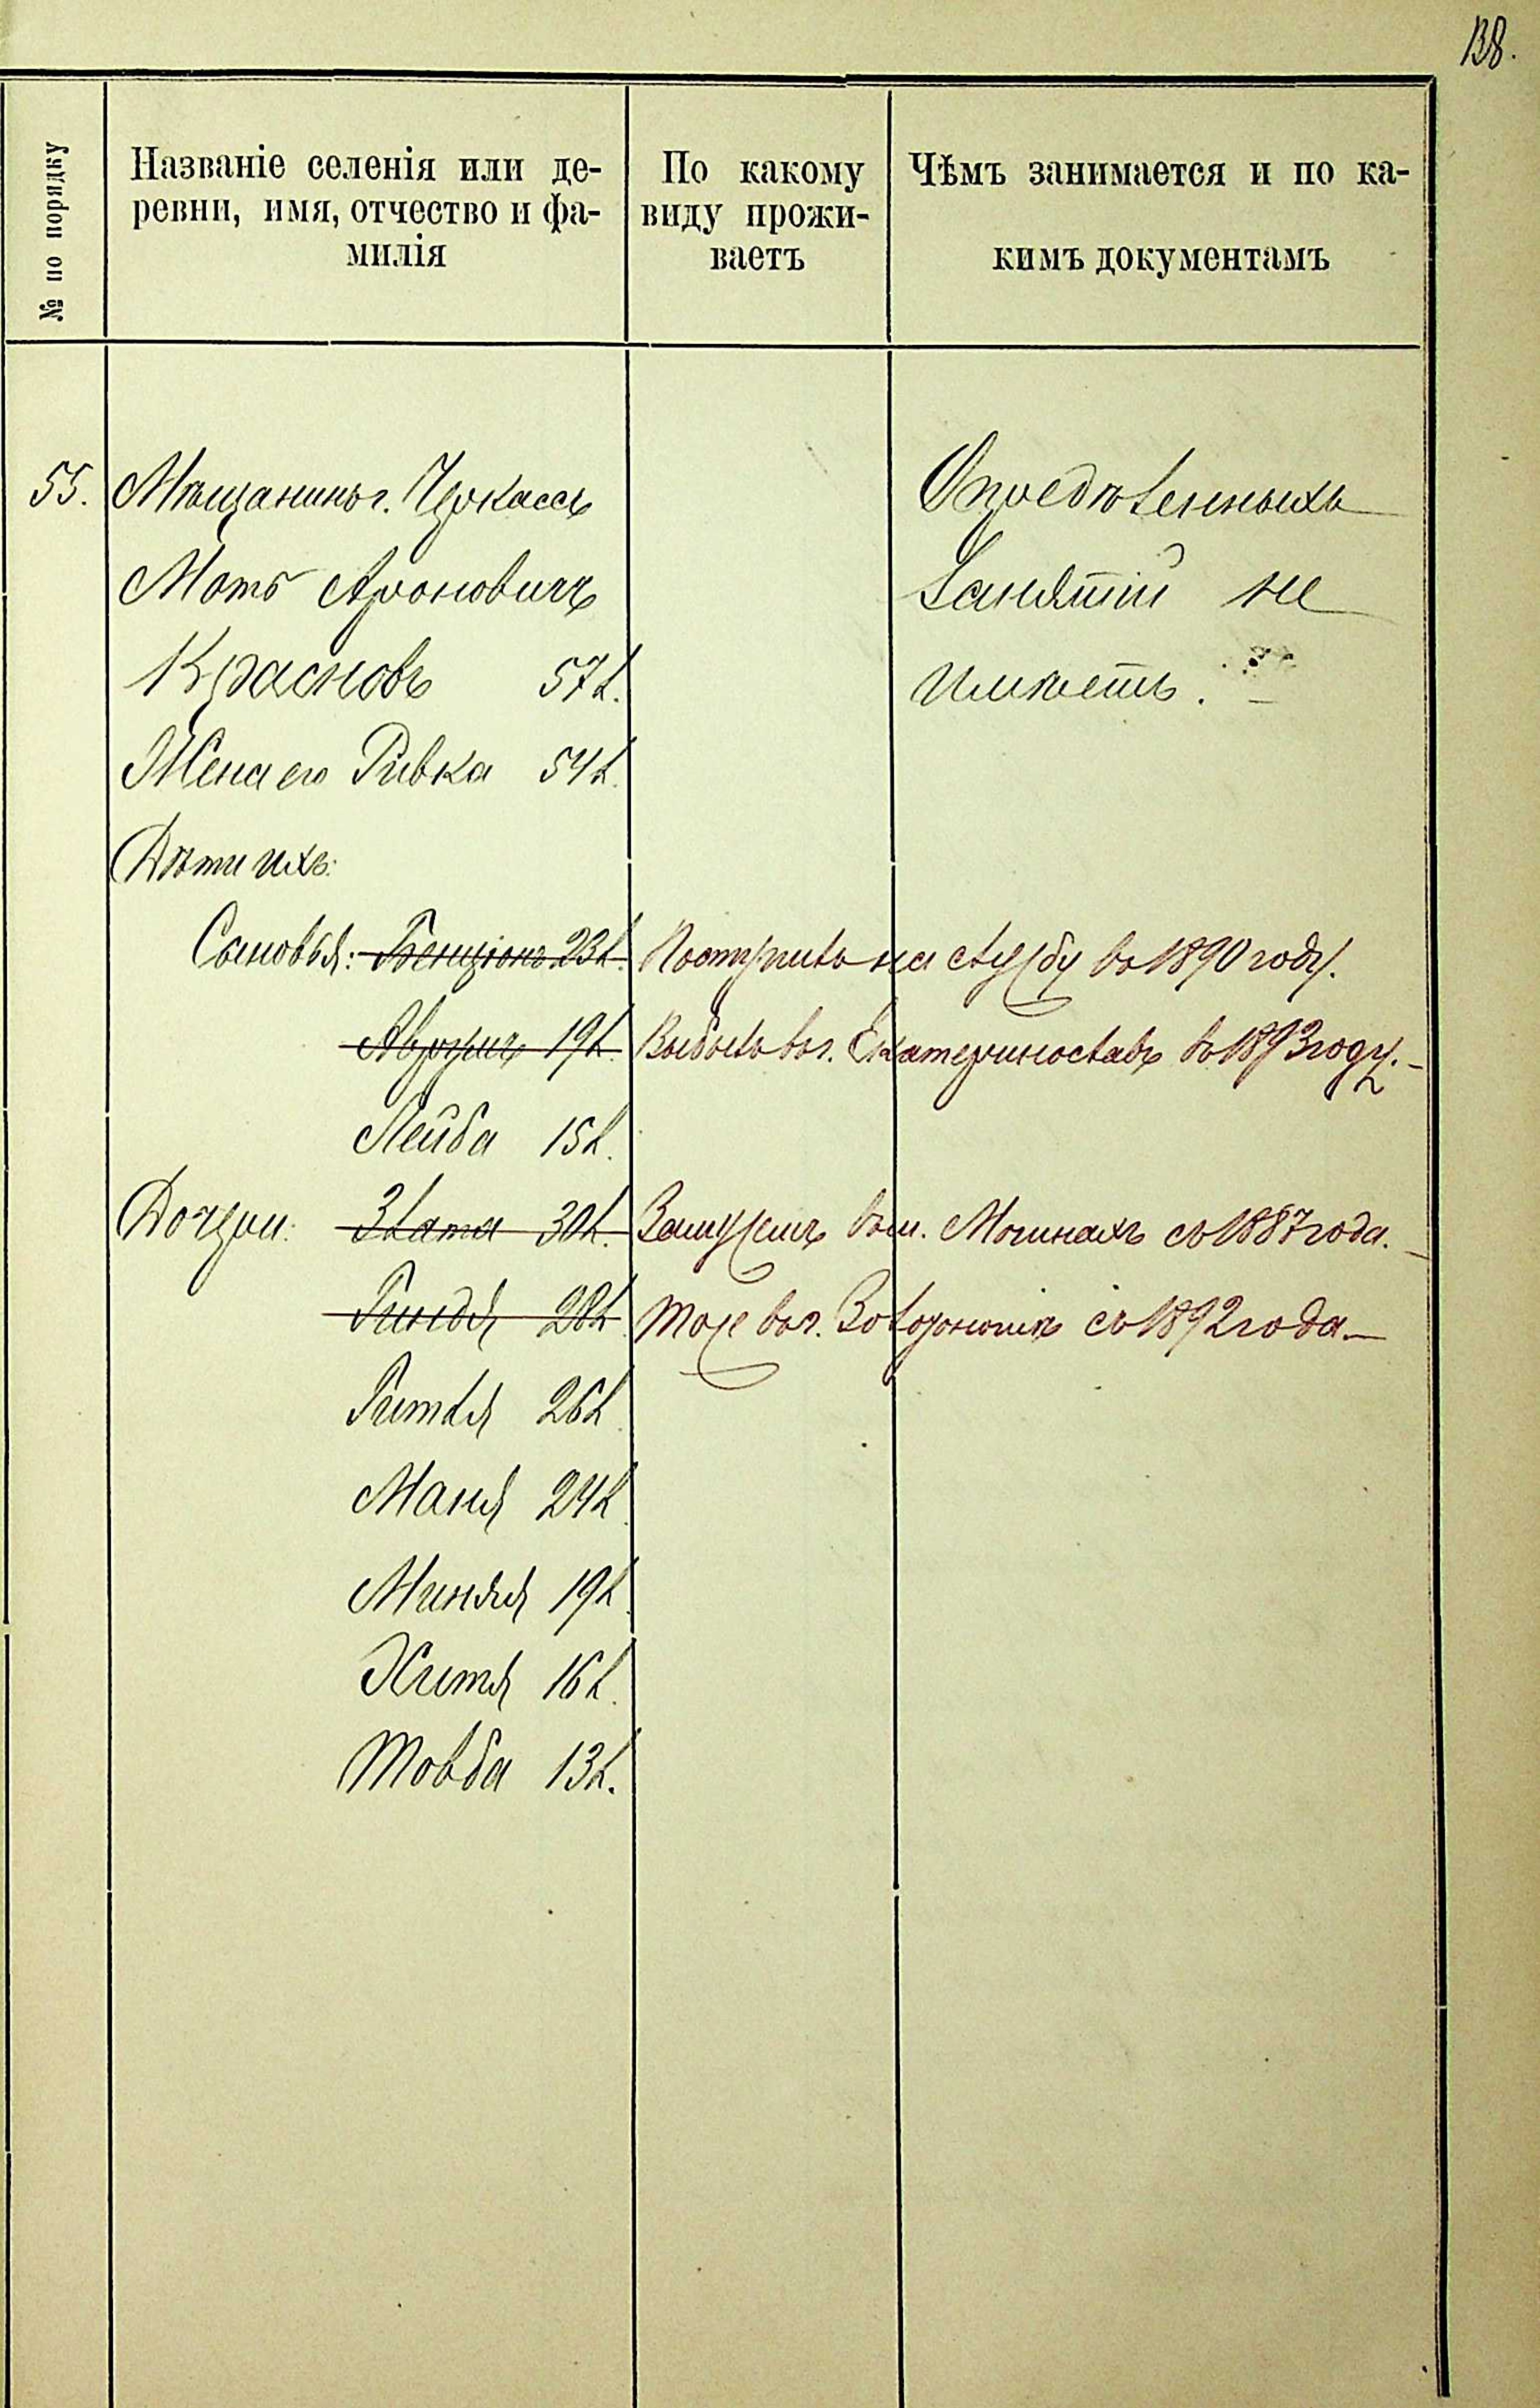 138.
№ по порядку
Названіе селенія или де-
ревни, имя, отчество и фа-
милія
По какому
виду прожи-
ваетъ
Чѣмъ занимается и по ка-
кимъ документамъ
55. Мѣщанинъ г. Черкассъ
Мотъ Ароновичъ
Красновъ 57 л.
Жена его Ривка 54 л.
Опредѣленныхъ
занятій не
имѣетъ.
Дѣти ихъ:
Сыновья: Бенціонъ 23 л. Поступилъ на службу въ 1890 году.
19 л. Выбылъ въ г. Екатеринославъ въ 1893 году.-
Лейба 15 л.
Дочери: Злата 30 л. Замужемъ въ м. Мошнахъ съ 1887 года.-
Гиндя 28 л. тоже въ г. Золотоноши съ 1892 года.-
Гитля 26 л.
Маня 24 л.
Миняя 19 л.
Хитя 16 л.
Товба 13 л.